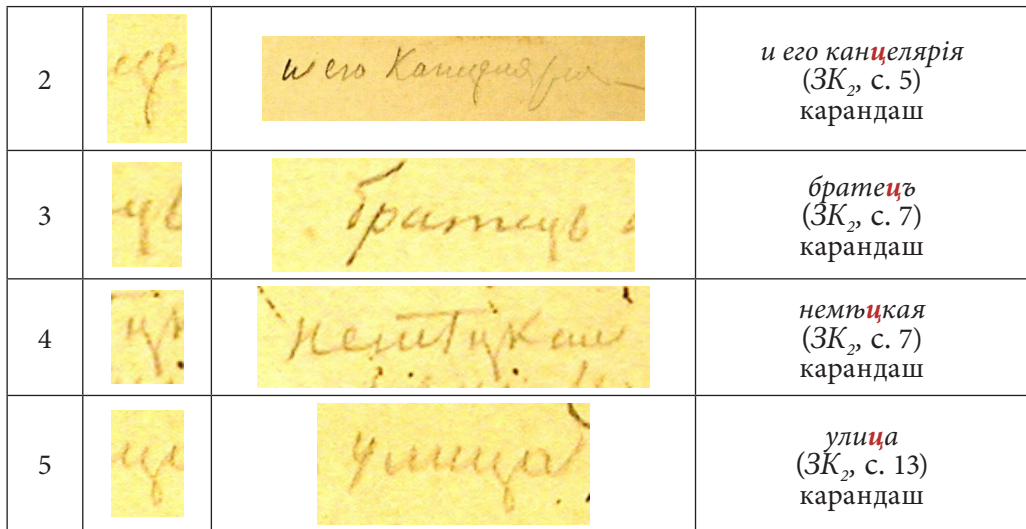 2
и его Канцелярія
и его канцелярія
(ЗК₂, с. 5)
карандаш
3
братецъ
братецъ
(ЗК₂, с. 7)
карандаш
4
немѣцкая
немѣцкая
(ЗК₂, с. 7)
карандаш
5
улица
улица
(ЗК₂, с. 13)
карандаш